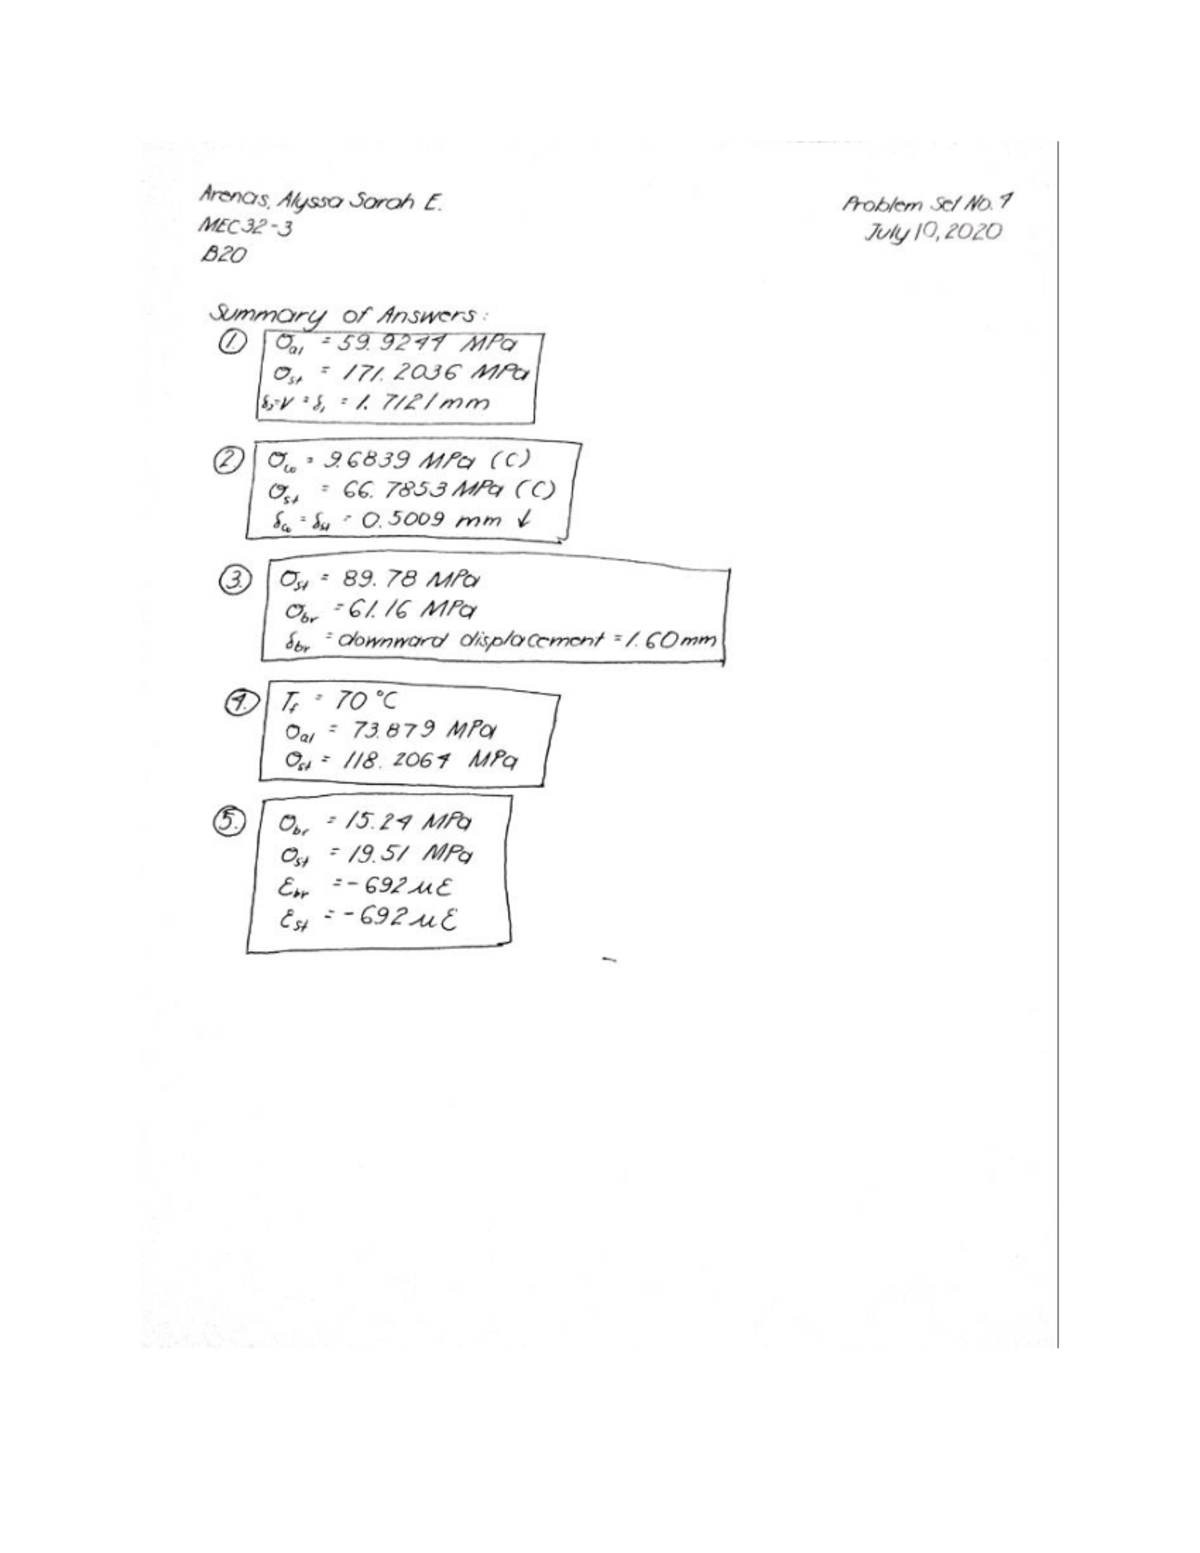 Arenas, Alyssa Sarah E.
Problem Set No. 4
MEC32-3
July 10, 2020
B20
Summary of Answers:
1. σal = 59.9244 MPa
σst = 171.2036 MPa
δ1 = 1.7121 mm
2. σco = 9.6839 MPa (C)
σst = 66.7853 MPa (C)
δco = δst = 0.5009 mm ↓
3. σst = 89.78 MPa
σbr = 61.16 MPa
δbr = downward displacement = 1.60 mm
4. Tf = 70 °C
σal = 73.879 MPa
σst = 118.2064 MPa
5. σbr = 15.24 MPa
σst = 19.51 MPa
εbr = -692 με
εst = -692 με